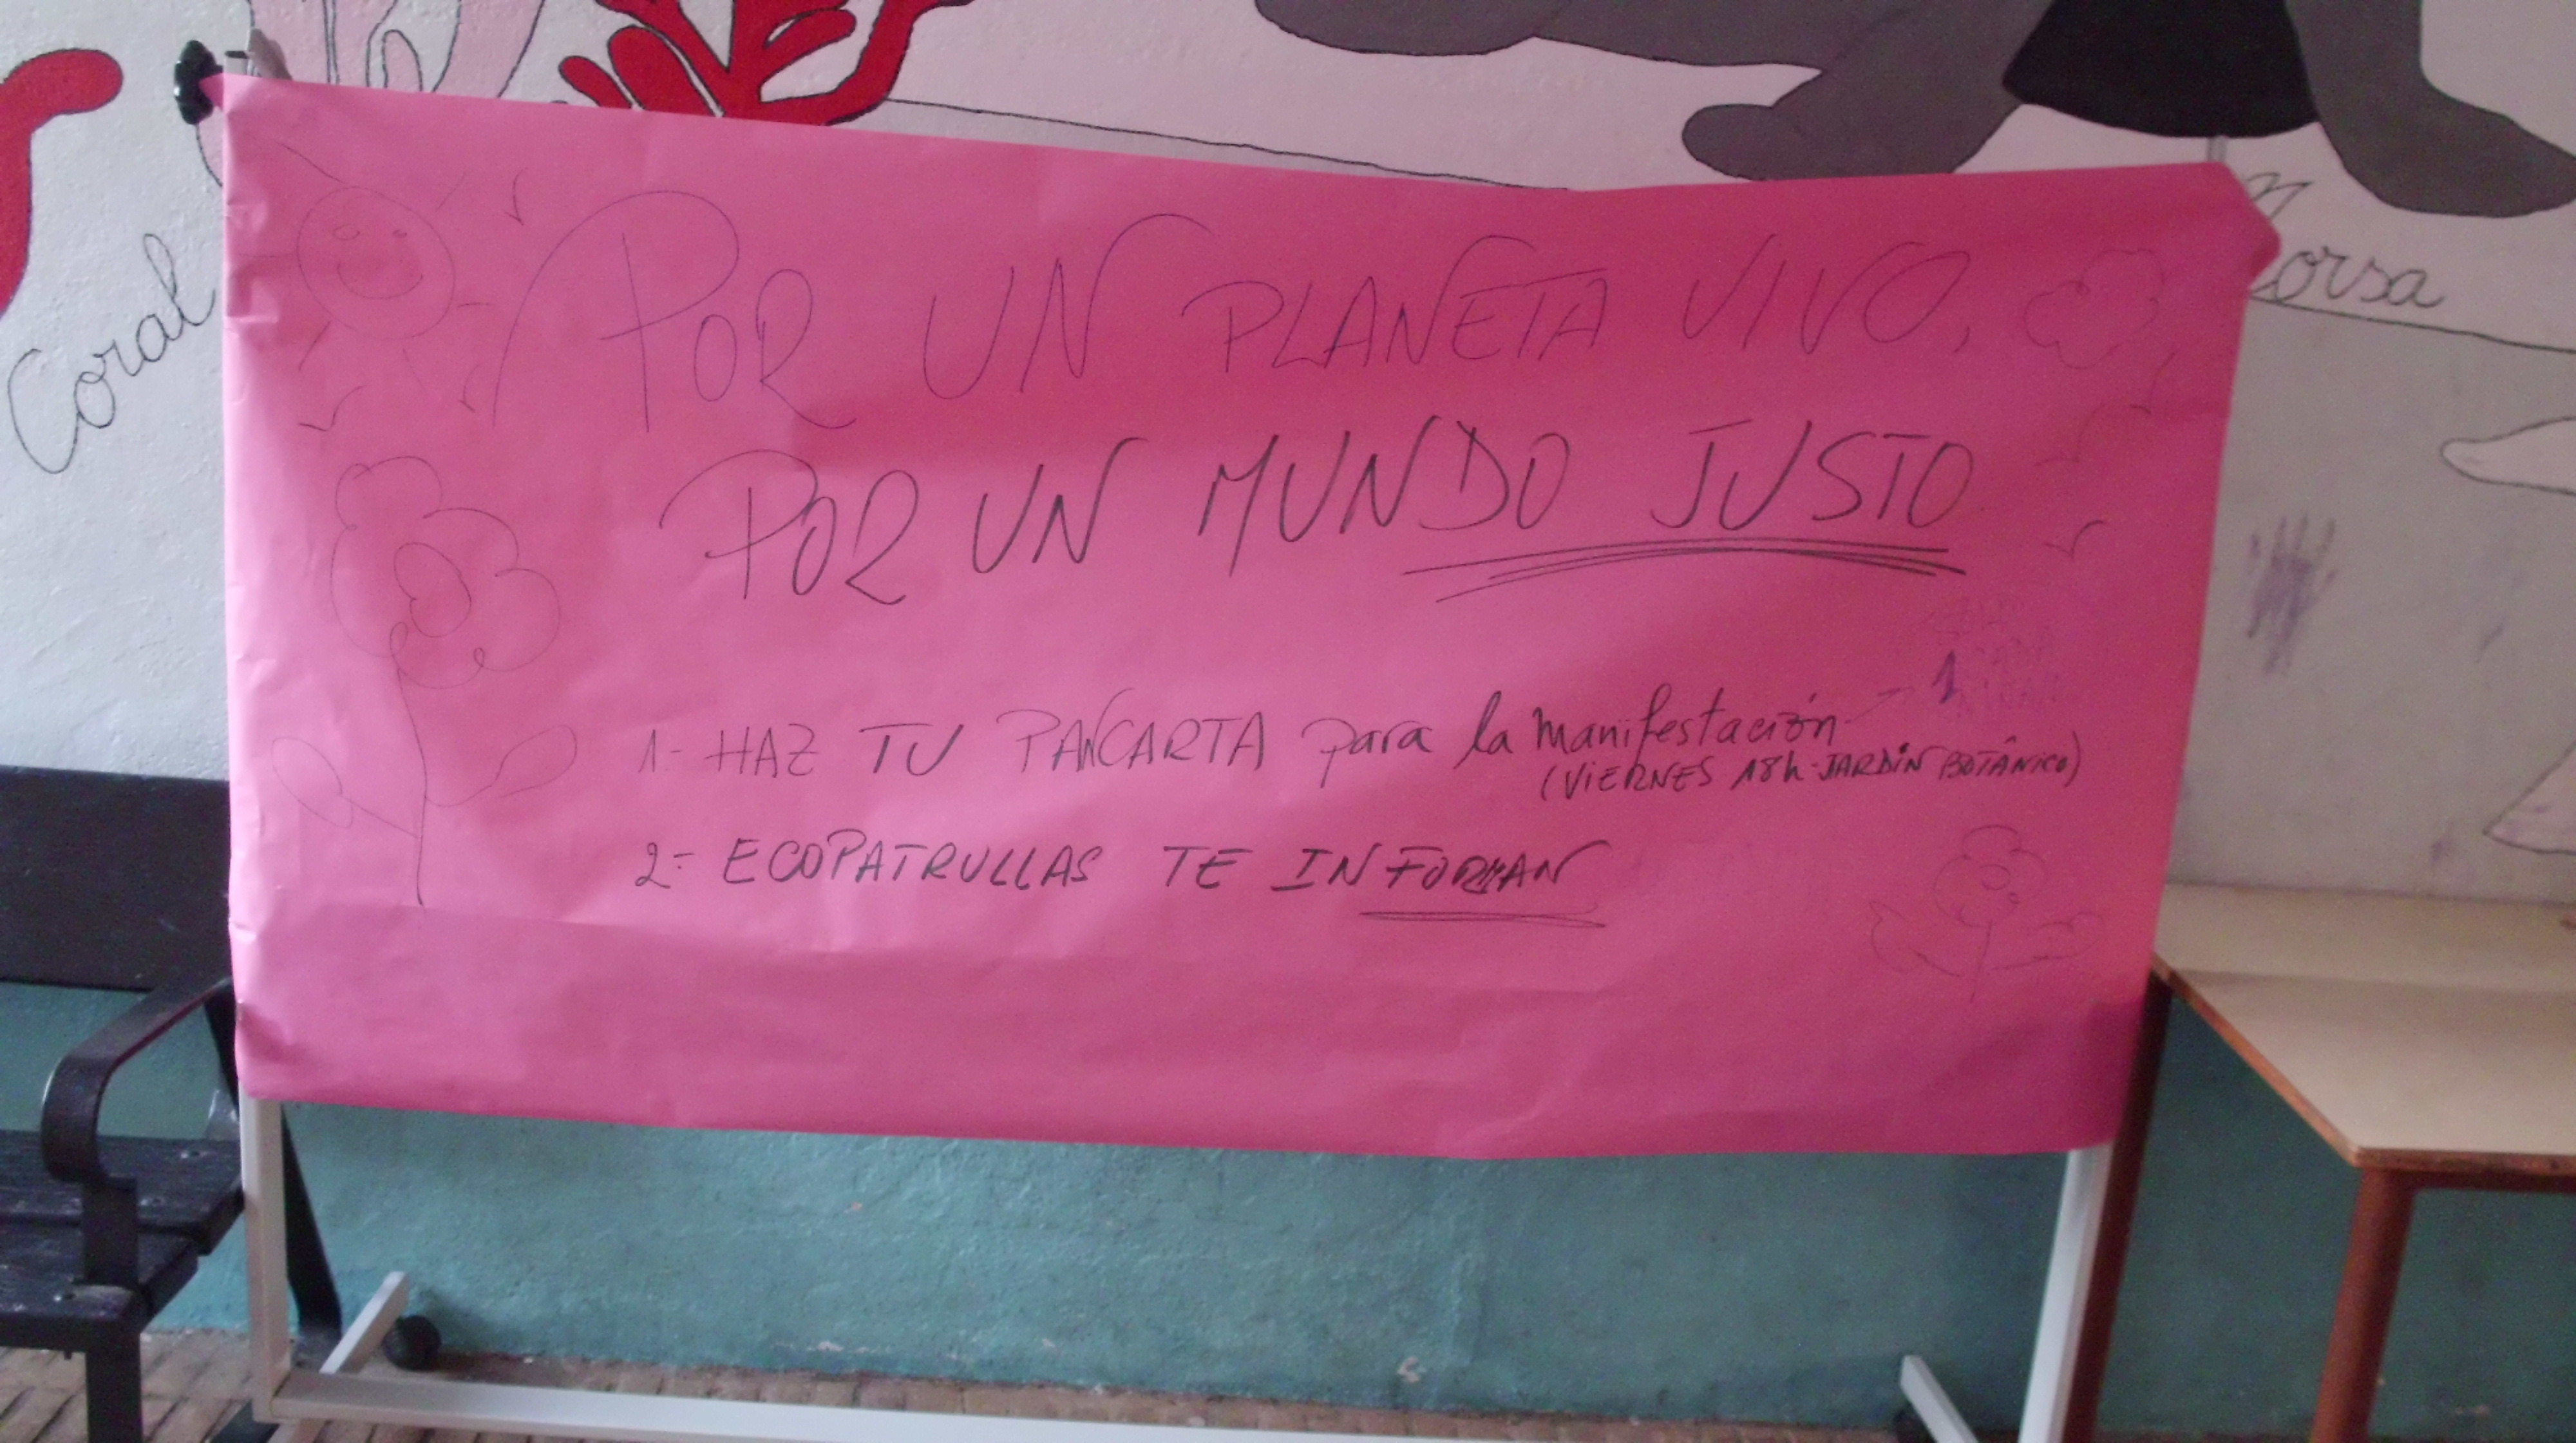 Coral
orsa
POR UN PLANETA VIVO,
POR UN MUNDO JUSTO
1- HAZ TU PANCARTA para la manifestación
1
(VIERNES 18h-JARDÍN BOTÁNICO)
2- ECOPATRULLAS TE INFORMAN